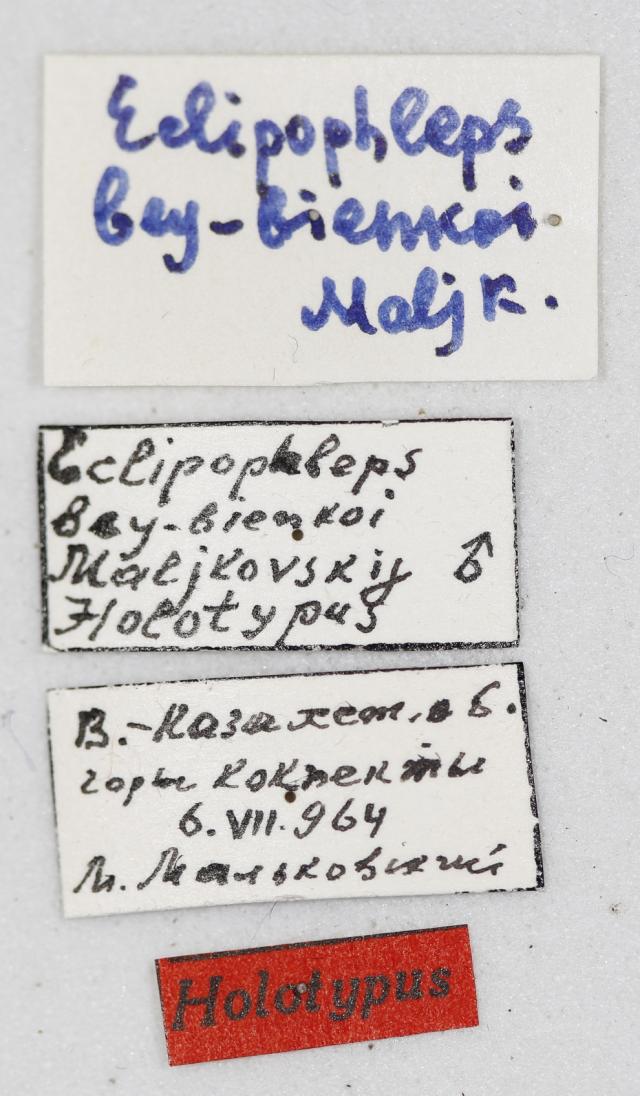 Eclipophleps
bey-bienkoi
Maljk.
Eclipophleps
bey-bienkoi
Maljkovskij ♂
Holotypus
В.-Казахст. об.
горы Кокпекты
6.VII.964
М. Мальковский
Holotypus